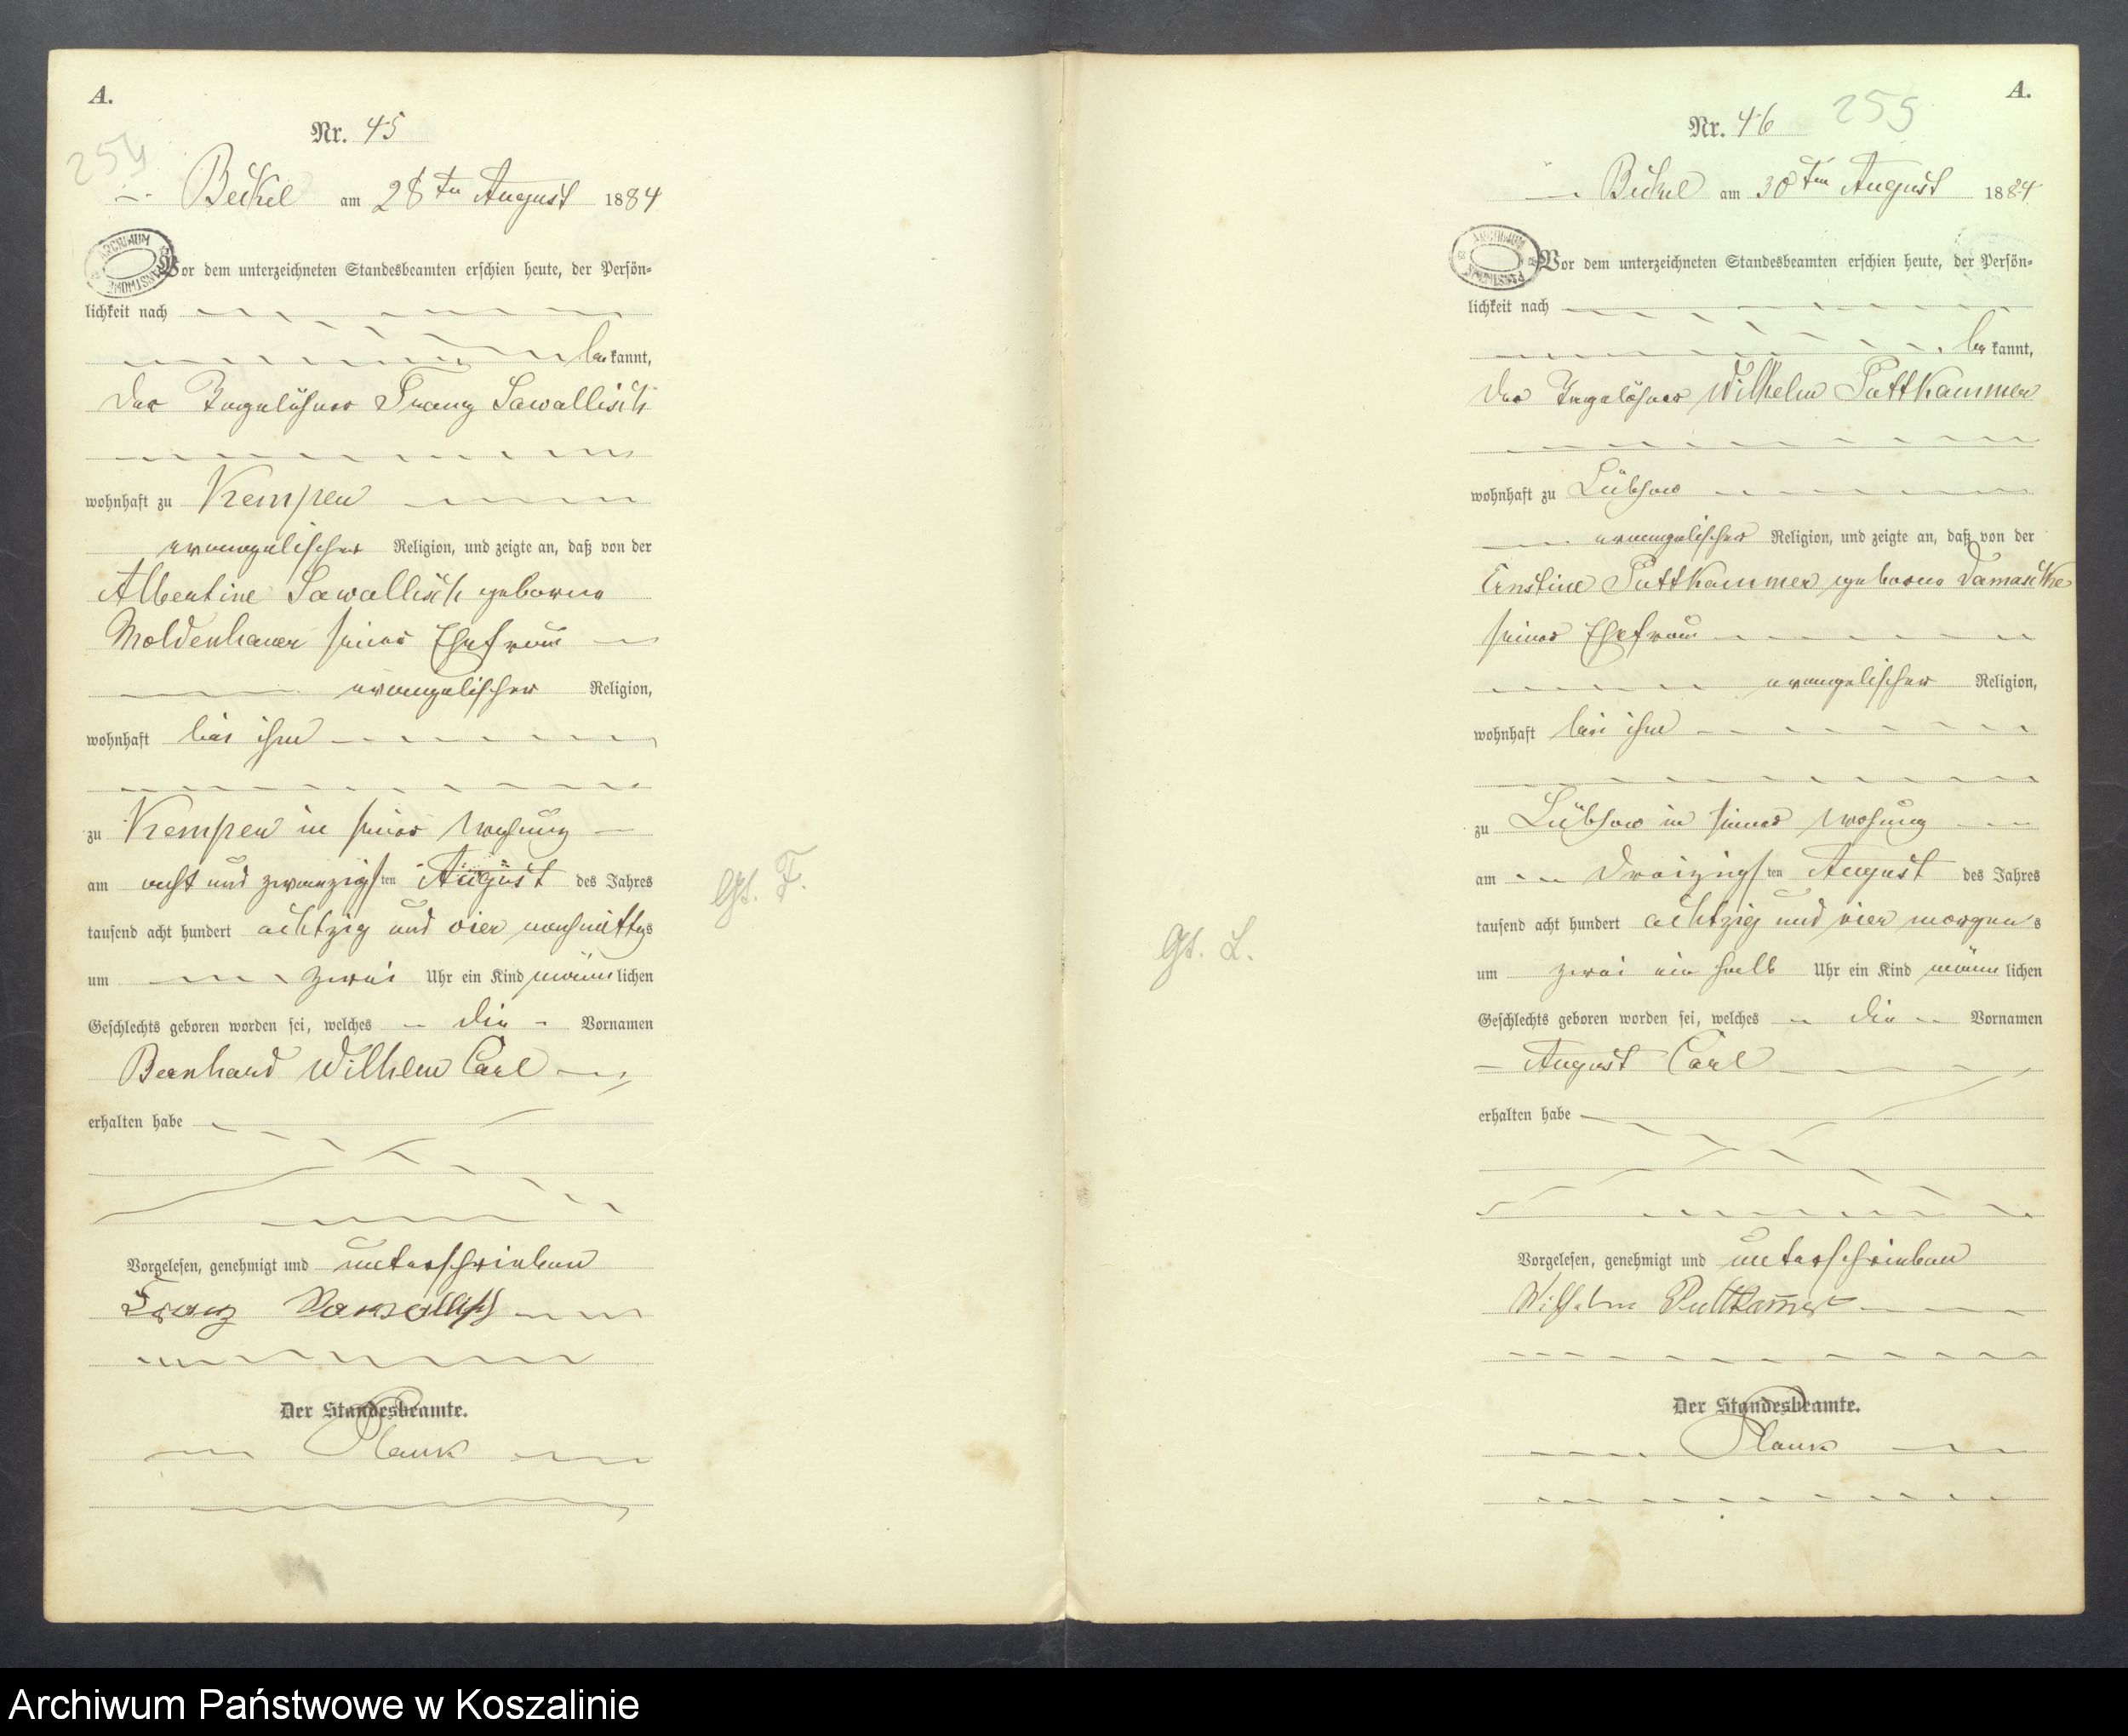 A.
254
Nr. 45
Beckel am 28ten August 1884
ARCHIWUM
PAŃSTWOWE
Vor dem unterzeichneten Standesbeamten erschien heute, der Persön=
lichkeit nach
bekannt,
der Tagelöhner Franz Sawallisch
wohnhaft zu Kempen
evangelischer Religion, und zeigte an, daß von der
Albertine Sawallisch geborne
Moldenhauer seiner Ehefrau
evangelischer Religion,
wohnhaft bei ihm
zu Kempen in seiner Wohnung
am acht und zwanzigsten August des Jahres
tausend acht hundert achtzig und vier nachmittags
um zwei Uhr ein Kind männlichen
Geschlechts geboren worden sei, welches die Vornamen
Bernhard Wilhelm Carl
erhalten habe
Vorgelesen, genehmigt und unterschrieben
Franz Sawallisch
Der Standesbeamte.
Plank
Gst. F.
A.
255
Nr. 46
Beckel am 30ten August 1884
ARCHIWUM
PAŃSTWOWE
Vor dem unterzeichneten Standesbeamten erschien heute, der Persön=
lichkeit nach
bekannt,
der Tagelöhner Wilhelm Puttkammer
wohnhaft zu Lübzow
evangelischer Religion, und zeigte an, daß von der
Ernstine Puttkammer geborne Damaschke
seiner Ehefrau
evangelischer Religion,
wohnhaft bei ihm
zu Lübzow in seiner Wohnung
am dreizigsten August des Jahres
tausend acht hundert achtzig und vier morgens
um zwei ein halb Uhr ein Kind männlichen
Geschlechts geboren worden sei, welches die Vornamen
August Carl
erhalten habe
Vorgelesen, genehmigt und unterschrieben
Wilhelm Puttkam̄er
Der Standesbeamte.
Plank
Gst. L.
Archiwum Państwowe w Koszalinie